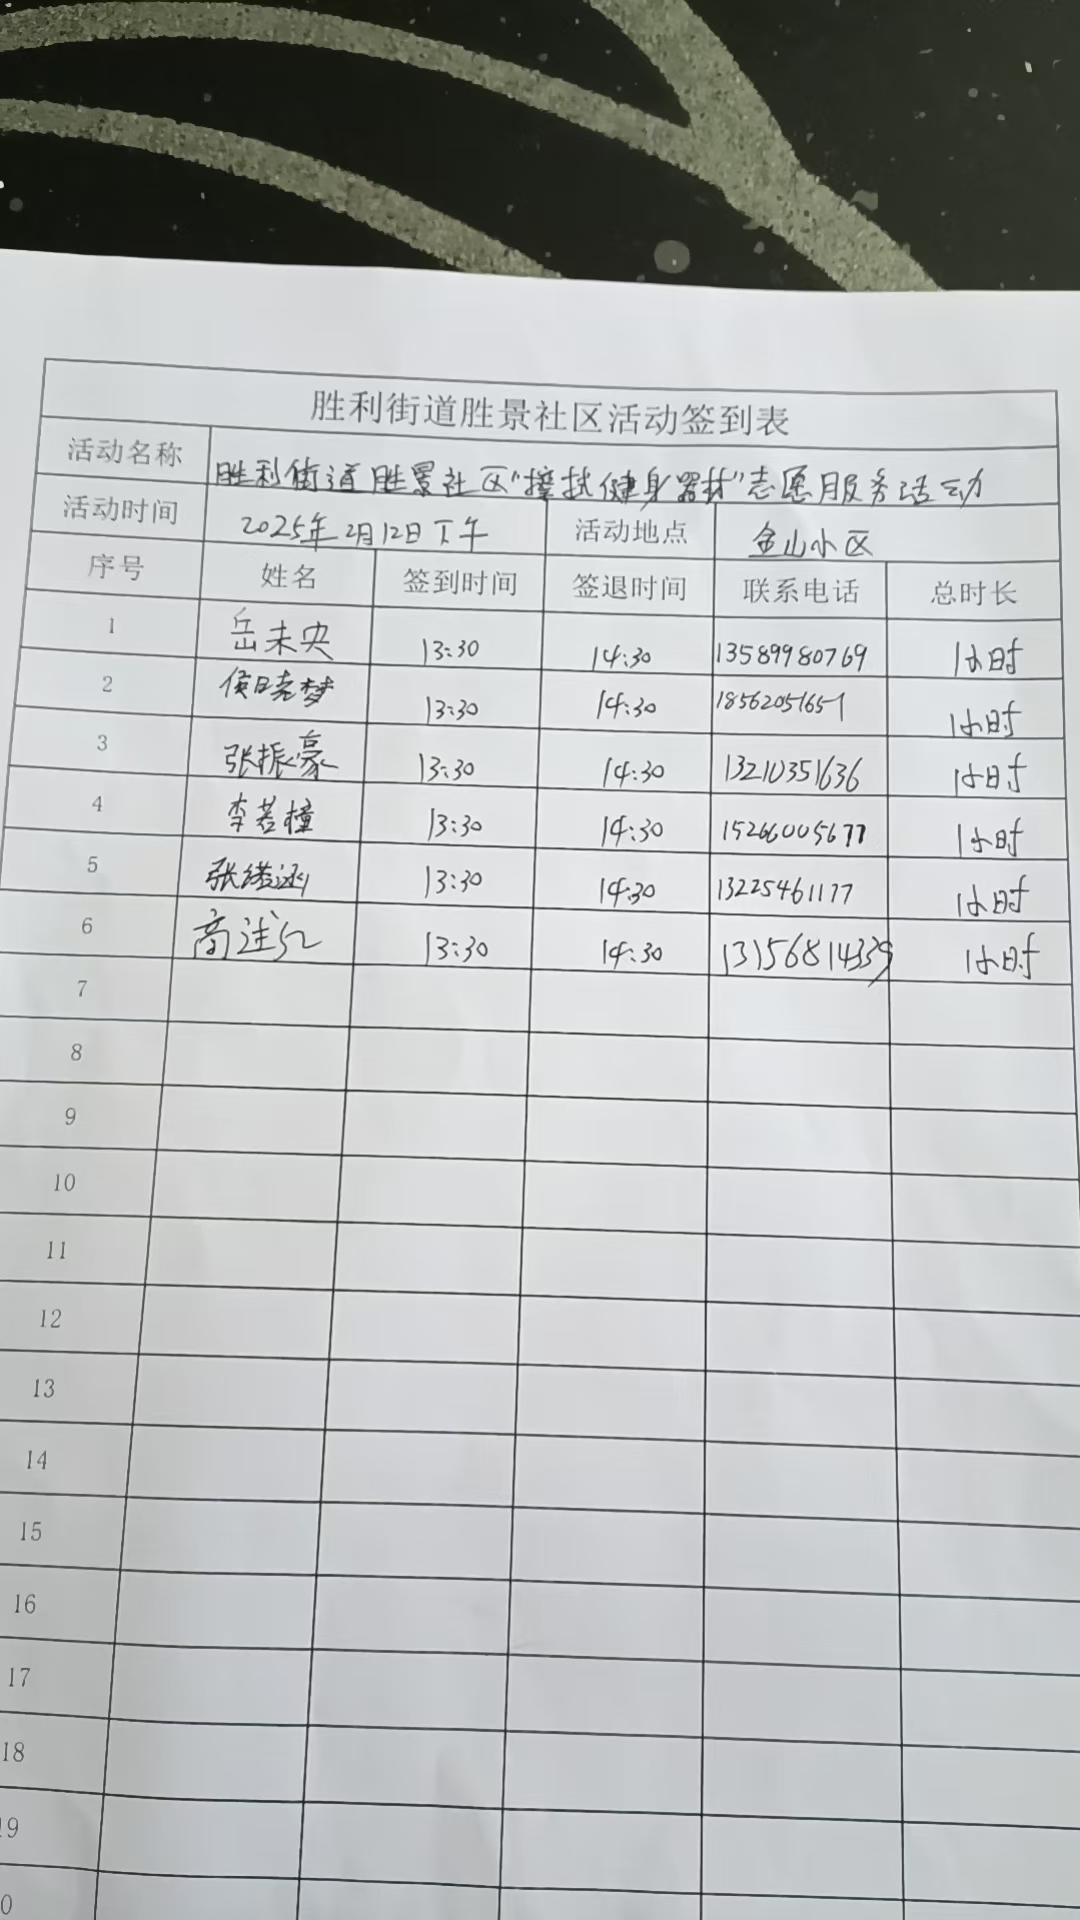 胜利街道胜景社区活动签到表
活动名称 胜利街道胜景社区"擦拭健身器材"志愿服务活动
活动时间 2025年2月12日下午 活动地点 金山小区
序号 姓名 签到时间 签退时间 联系电话 总时长
1 岳未央 13:30 14:30 13589980769 1小时
2 侯晓梦 13:30 14:30 18562051657 1小时
3 张振豪 13:30 14:30 13210351636 1小时
4 李若橦 13:30 14:30 15266005677 1小时
5 张诺涵 13:30 14:30 13225461177 1小时
6 高 13:30 14:30 13156814339 1小时
7
8
9
10
11
12
13
14
15
16
17
18
19
0